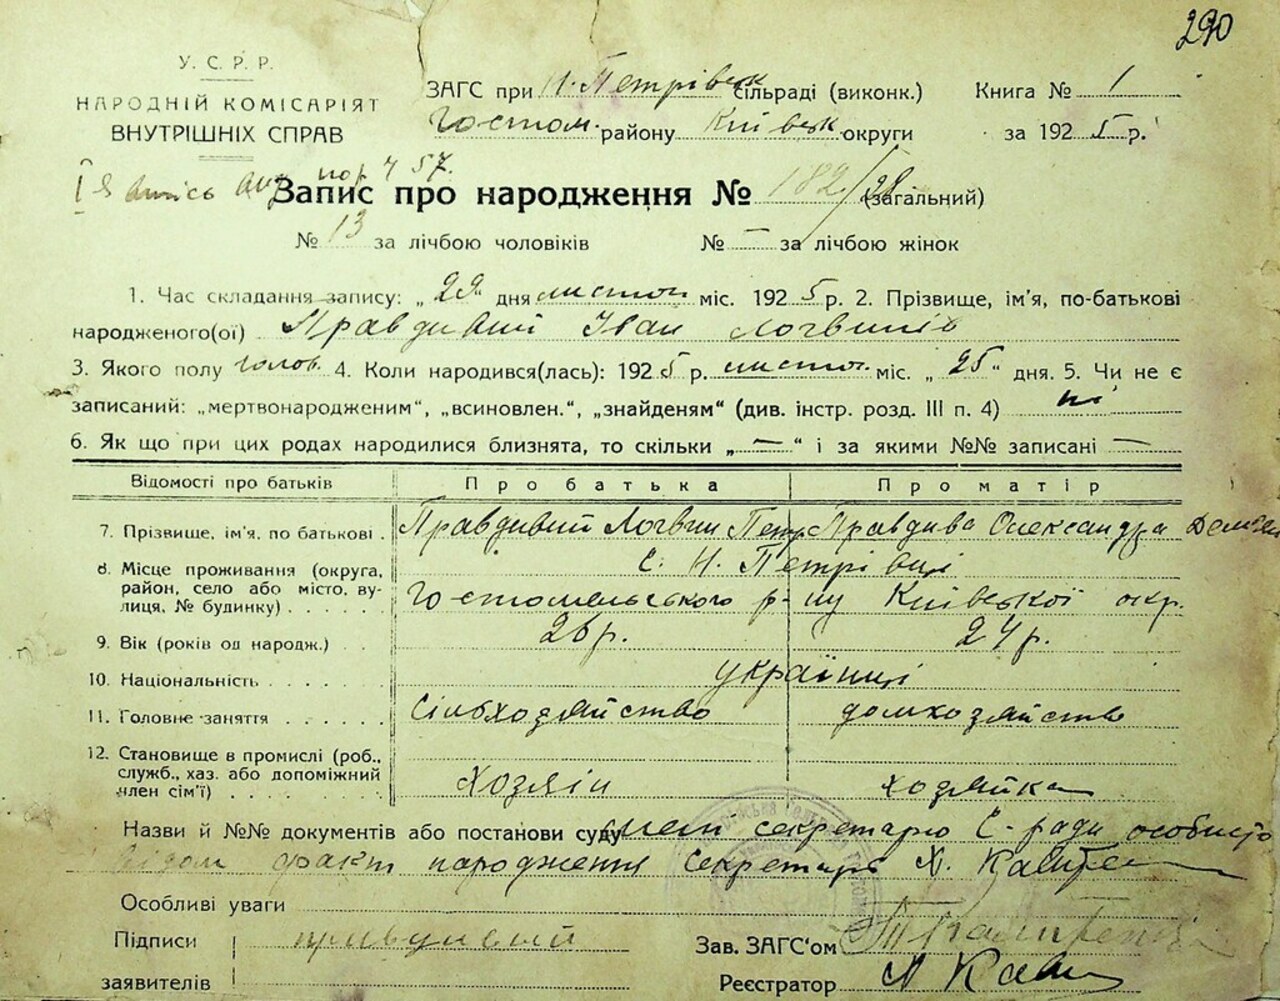 290
У. С. Р. Р.
НАРОДНІЙ КОМІСАРІЯТ
ВНУТРІШНІХ СПРАВ
ЗАГС при Н. Петрівськ сільраді (виконк.) Книга № 1
Гостом. району Київськ округи за 1925 р.
Запис про народження № 182/28 (загальний)
№ 13 за лічбою чоловіків № — за лічбою жінок
1. Час складання запису: „29“ дня листоп міс. 1925 р. 2. Прізвище, ім'я, по-батькові
народженого(ої) Правдивий Іван Логвинів
3. Якого полу чолов. 4. Коли народився(лась): 1925 р. листоп. міс. „25“ дня. 5. Чи не є
записаний: „мертвонародженим“, „всиновлен.“, „знайденям“ (див. інстр. розд. III п. 4) ні
6. Як що при цих родах народилися близнята, то скільки „—“ і за якими №№ записані —
Відомості про батьків Про батька Про матір
7. Прізвище, ім'я, по батькові . Правдивий Логвин Петр Правдива Олександра
8. Місце проживання (округа, район, село або місто, вулиця, № будинку) . . . . . с. Н. Петрівці
Гостомельського р-ну Київської окр.
9. Вік (років од народж.) . . 26 р. 24 р.
10. Національність . . . . . . українці
11. Головне заняття . . . . . . сільхозяйство домхозяйство
12. Становище в промислі (роб., служб., хаз. або допоміжний член сім'ї) . . . . . . . хозяїн хозяйка
Назви й №№ документів або постанови суду мені секретарю С-ради особисто
відом факт народження секретарь
Особливі уваги
Підписи
заявителів правдивий
Зав. ЗАГС'ом
Реєстратор